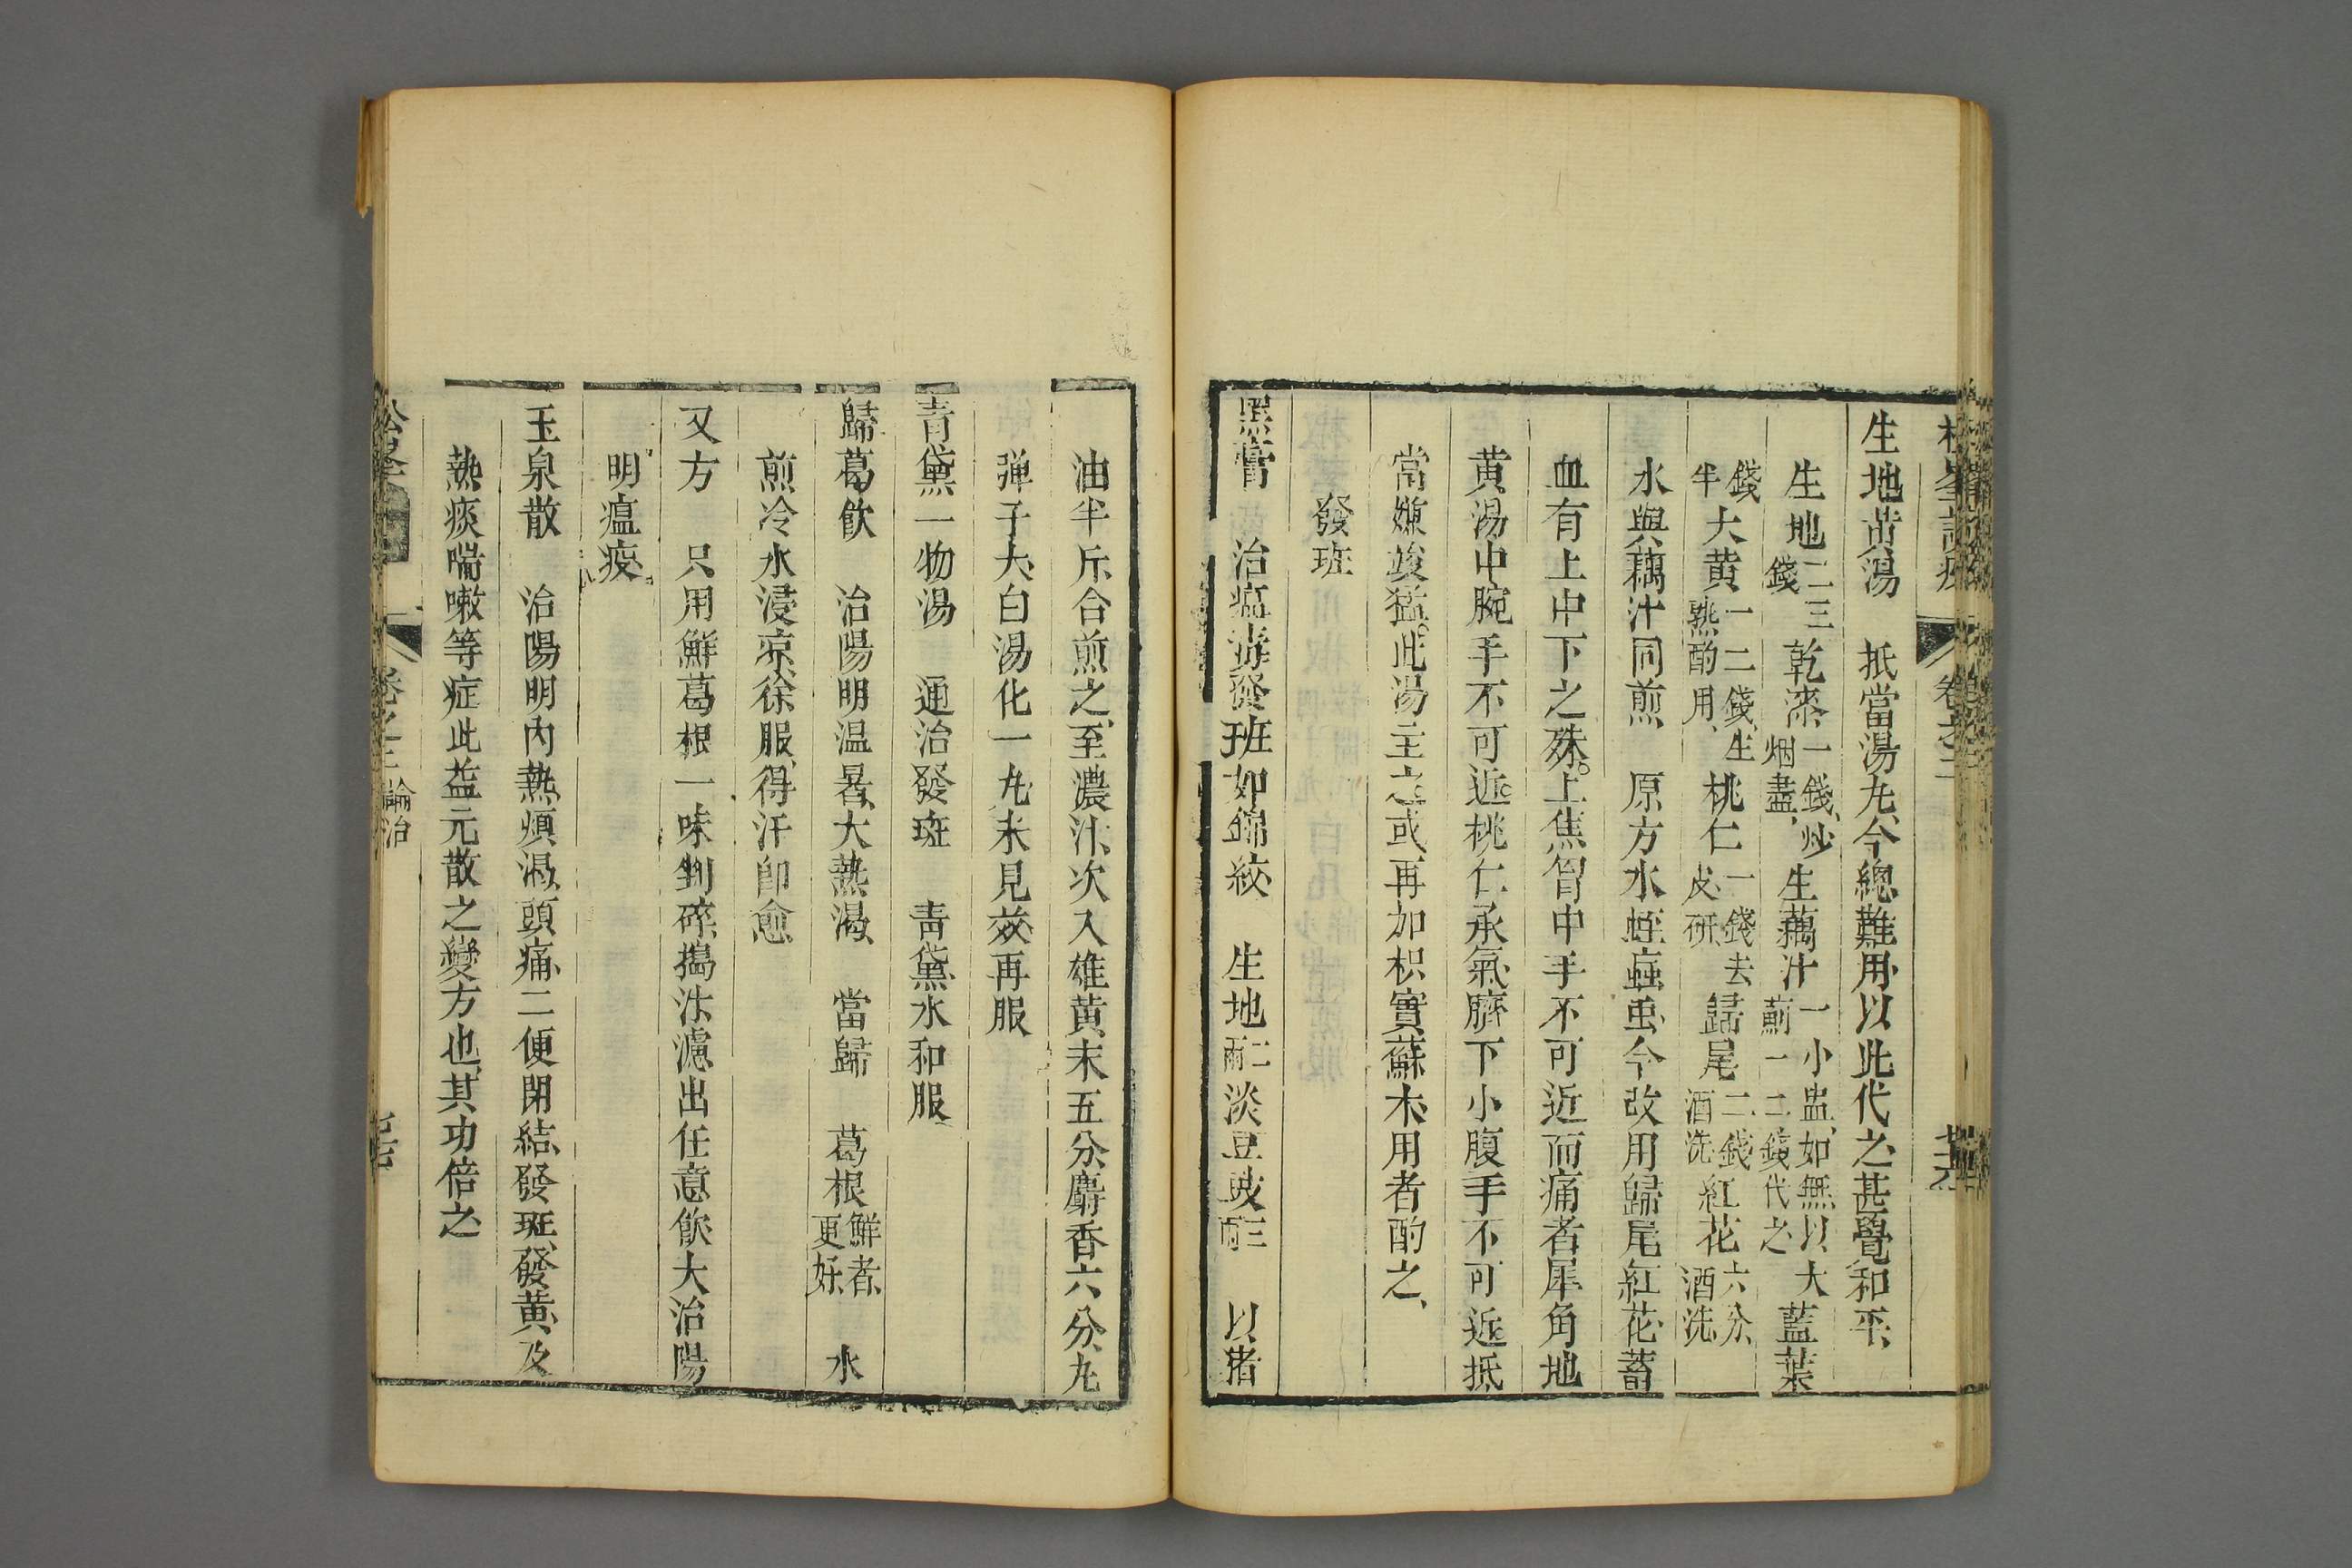 松峯說疫 卷之二
生地黃湯 抵當湯丸今總難用以此代之甚覺和平
生地二三錢 乾漆一錢炒烟盡 生藕汁一小盅如無以大薊一二錢代之 藍葉
錢半 大黃一二錢生熟酌用 桃仁一錢去皮研 歸尾二錢酒洗 紅花六分酒洗
水與藕汁同煎 原方水蛭䖟虫今改用歸尾紅花蓄
血有上中下之殊上焦胷中手不可近而痛者犀角地
黃湯中腕手不可近桃仁承氣臍下小腹手不可近抵
當嫌峻猛此湯主之或再加枳實蘇木用者酌之
發班
黑膏 治瘟毒發班如錦紋 生地二兩 淡豆豉三兩 以猪
油半斤合煎之至濃汁次入雄黃末五分麝香六分丸
彈子大白湯化一丸未見效再服
青黛一物湯 通治發斑 青黛水和服
歸葛飲 治陽明溫暑大熱渴 當歸 葛根鮮者更好 水
煎冷水浸凉徐服得汗卽愈
又方 只用鮮葛根一味剉碎搗汁濾出任意飲大治陽
明瘟疫
玉泉散 治陽明內熱煩渴頭痛二便閉結發斑發黃及
熱痰喘嗽等症此益元散之變方也其功倍之
卷之二 論治